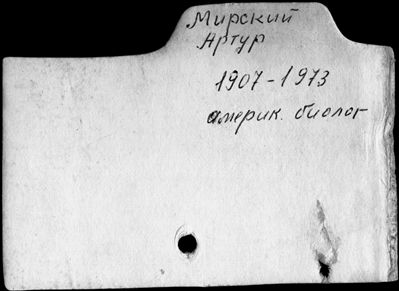 Мирский
Артур
1907-1973
америк. биолог